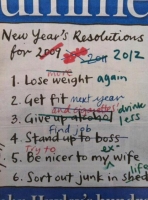 New Year's Resolutions
for 2009 2010 2011 2012
more
1. Lose weight again
2. Get fit next year
and cigarettes! drink
3. Give up alcohol less
4. Stand up to boss
Find job
Try to ex
5. Be nicer to my wife
life
6. Sort out junk in shed